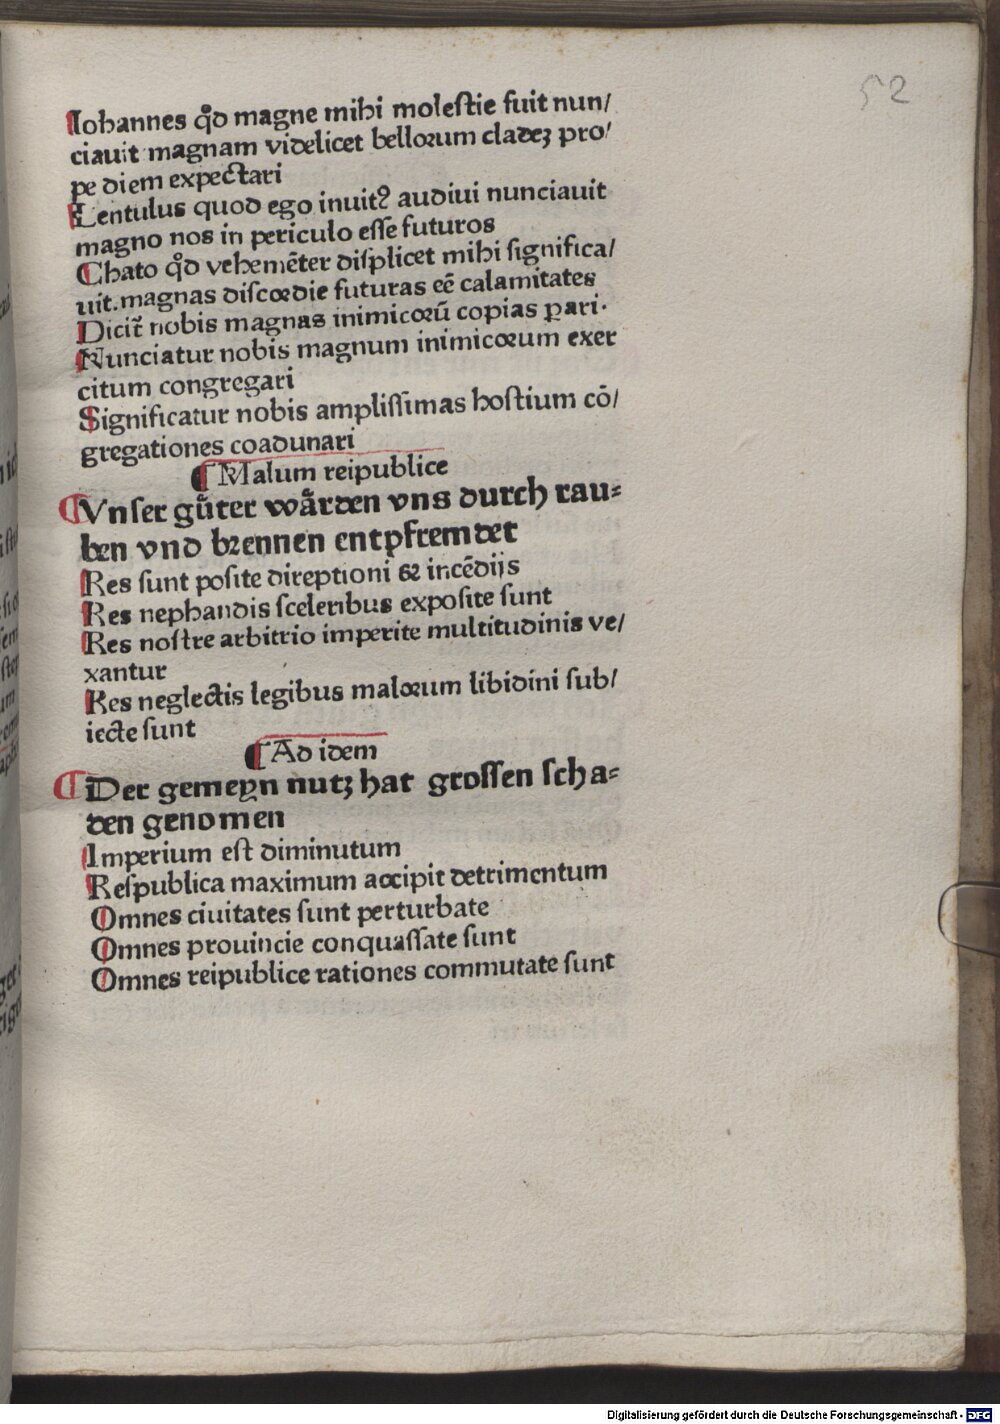 52
Iohannes qͦd magne mihi moleſtie fuit nun/
ciauit magnam videlicet belloꝛum cladeꝫ pro/
pe diem expectari
Lentulus quod ego inuitꝰ audiui nunciauit
magno nos in periculo eſſe futuros
Chato qͦd vehemēter diſplicet mihi ſignifica/
uit. magnas diſcoꝛdie futuras eē calamitates
Dicit̄ nobis magnas inimicoꝛū copias ꝑari.
Nunciatur nobis magnum inimicoꝛum exer
citum congregari
Significatur nobis ampliſſimas hoſtium cō/
gregationes coadunari
¶ Malum reipublice
¶ Vnſer guͤter waͤrden vns durch rau⸗
ben vnd bꝛennen entpfremdet
Res ſunt poſite direptioni ⁊ incēdijs
Res nephandis ſceleribus expoſite ſunt
Res noſtre arbitrio imperite multitudinis ve/
xantur
Res neglectis legibus maloꝛum libidini ſub/
iecte ſunt
¶ Ad idem
¶ Der gemeyn nutꝫ hat groſſen ſcha⸗
den genomen
Imperium eſt diminutum
Reſpublica maximum accipit detrimentum
Omnes ciuitates ſunt perturbate
Omnes prouincie conquaſſate ſunt
Omnes reipublice rationes commutate ſunt
Digitalisierung gefördert durch die Deutsche Forschungsgemeinschaft - DFG